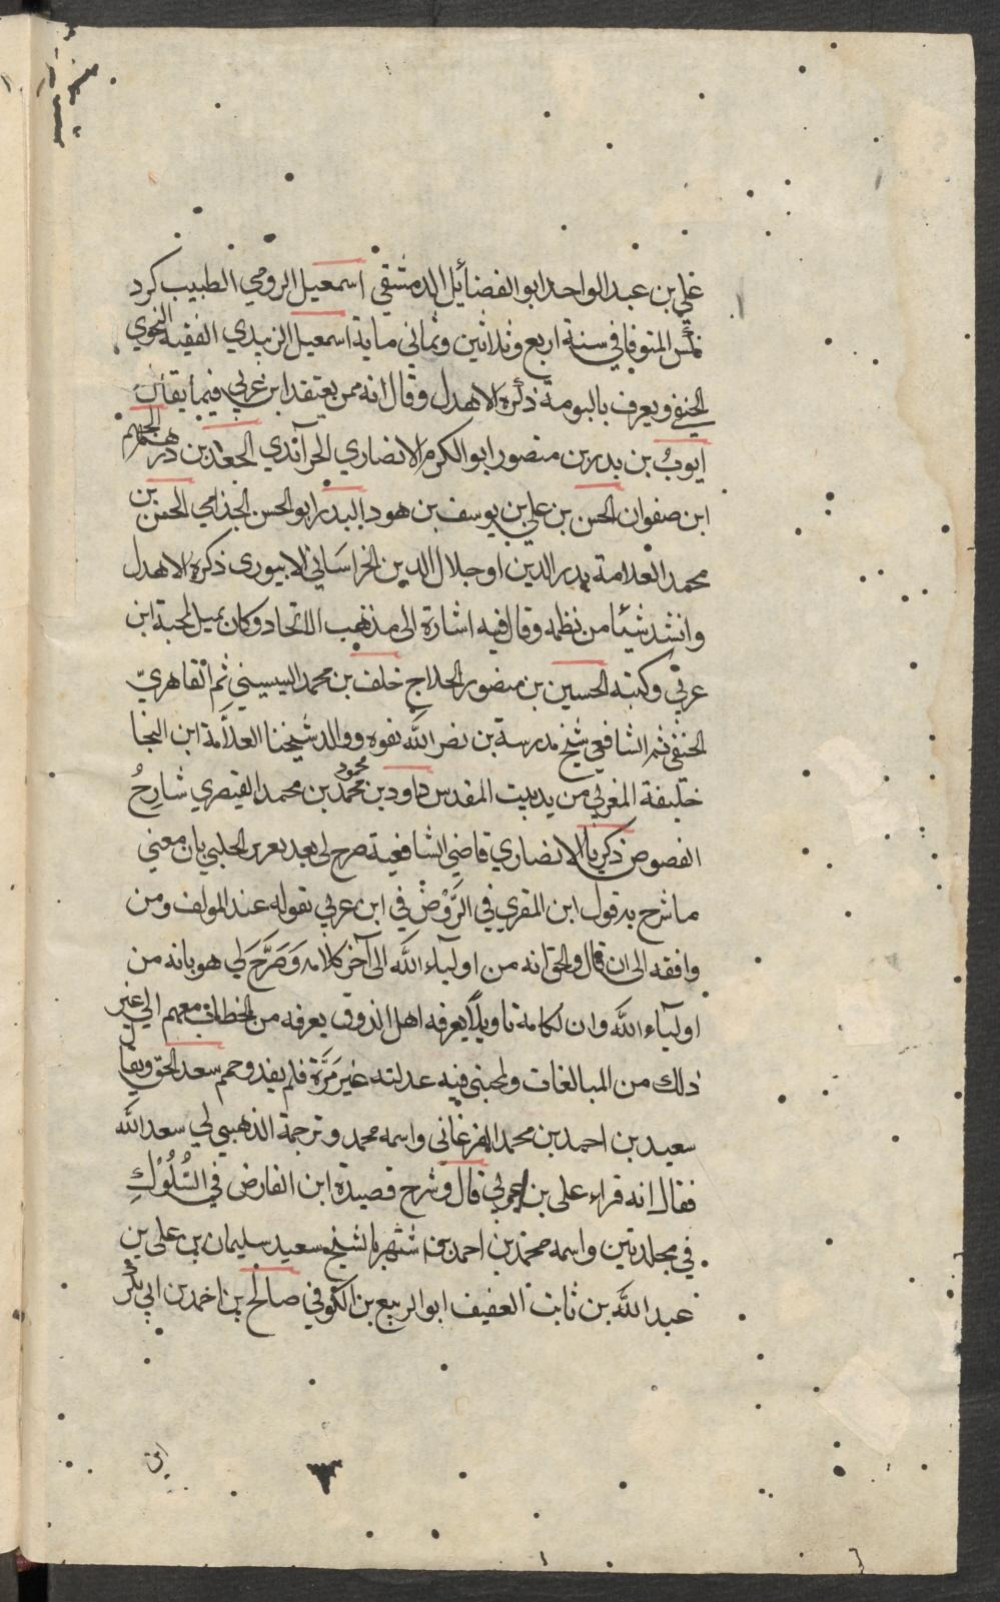 علي بن عبد الواحد ابو الفضائل الدمشقي اسمعيل الرومي الطبيب كرد
المتوفا في سنة اربع وثلاثين وثماني ماية اسمعيل الزبيدي الفقيه النحوي
الحنفي ويعرف بالبومة ذكره الاهدل وقال انه ممن يعتقد ابن عربي فيما يقال
ايوب بن بدر بن منصور ابو الكرم الانصاري الجعد بن درهم الجهم
ابن صفوان الحسن بن علي بن يوسف بن هود البدر ابو الحسن الجذامي الحسن بن
محمد العلامة بدر الدين او جلال الدين الخراساني الابيوردى ذكره الاهدل
وانشد شيئا من نظمه وقال فيه اشارة الى مذهب الاتحاد وكان يميل لمحبة ابن
عربي وكتبه الحسين بن منصور الحلاج خلف بن محمد ثم القاهري
الحنفي ثم الشافعي شيخ مدرسة بن نصر الله بفوه ووالد شيخنا العلامة ابن النجا
خليفة المغربي من يد بيت المقدس داود بن محمود محمد بن محمد القيصري شارح
الفصوص زكريا الانصاري قاضي الشافعية صرح لي بعد الحلبي بان معني
ما شرح به قول ابن المقري في الروض في ابن عربي بقوله عند المولف ومن
وافقه الى ان قال والحق انه من اولياء الله الى آخر كلامه وصرح لي هو بانه من
اولياء الله وان لكلامه تاويلا يعرفه اهل الذوق يعرفه من الخطاف معهم الي غير
ذلك من المبالغات ولمحبتي فيه عدلته غير مرة فلم يفد وحم سعد الحق ويقا
سعيد بن احمد بن محمد الفرغاني واسمه محمد وترجمة الذهبي لي سعد الله
فقال انه قراء على بن عربي قال وشرح قصيدة ابن الفارض في السلوك
في مجلدتين واسمه محمد بن احمد من اشتهر بالشيخ سعيد سليمان بن على بن
عبد الله بن ثابت العفيف ابو الربيع بن الكوفي صالح بن احمد بن ابي بكر
ابن